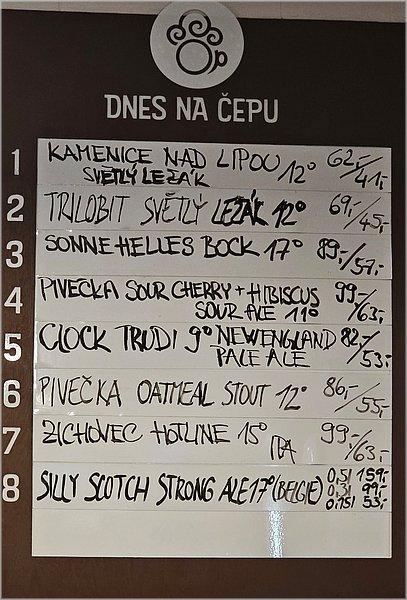 DNES NA ČEPU
1 KAMENICE NAD LIPOU 12° 62,-/41,-
SVĚTLÝ LEŽÁK
2 TRILOBIT SVĚTLÝ LEŽÁK 12° 69,-/45,-
3 SONNE HELLES BOCK 17° 89,-/57,-
4 PIVEČKA SOUR CHERRY + HIBISCUS 99,-/63,-
SOUR ALE 11°
5 CLOCK TRUDI 9° NEW ENGLAND 82,-/53,-
PALE ALE
6 PIVEČKA OATMEAL STOUT 12° 86,-/55,-
7 ZICHOVEC HOTLINE 15° IPA 99,-/63,-
8 SILLY SCOTCH STRONG ALE 17° (BELGIE) 0,5l 159,-
0,3l 99,-
0,15l 53,-